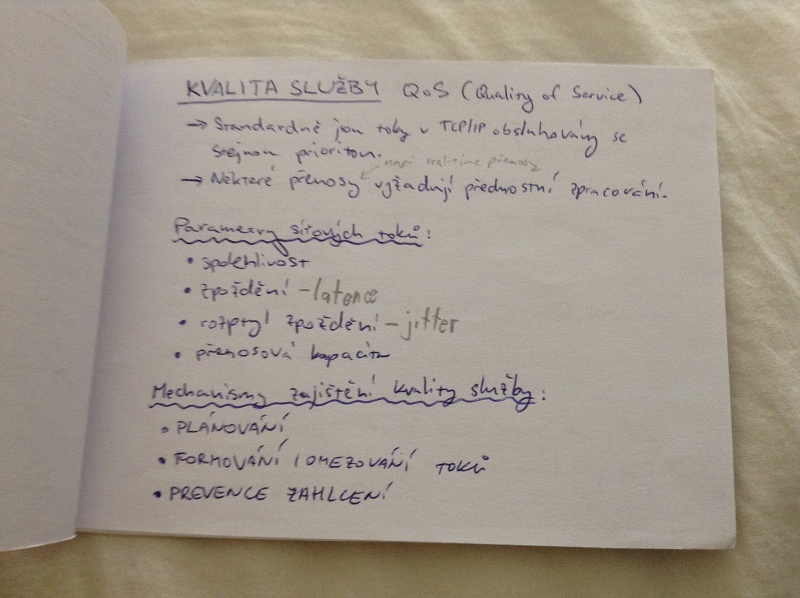 KVALITA SLUŽBY QoS (Quality of Service)
→ Standardně jsou toky v TCP/IP obsluhovány se
stejnou prioritou.
např realtime přenosy
→ Některé přenosy vyžadují přednostní zpracování.
Parametry síťových toků:
• spolehlivost
• zpoždění - latence
• rozptyl zpoždění - jitter
• přenosová kapacita
Mechanismy zajištění kvality služby:
• PLÁNOVÁNÍ
• FORMOVÁNÍ / OMEZOVÁNÍ TOKŮ
• PREVENCE ZAHLCENÍ